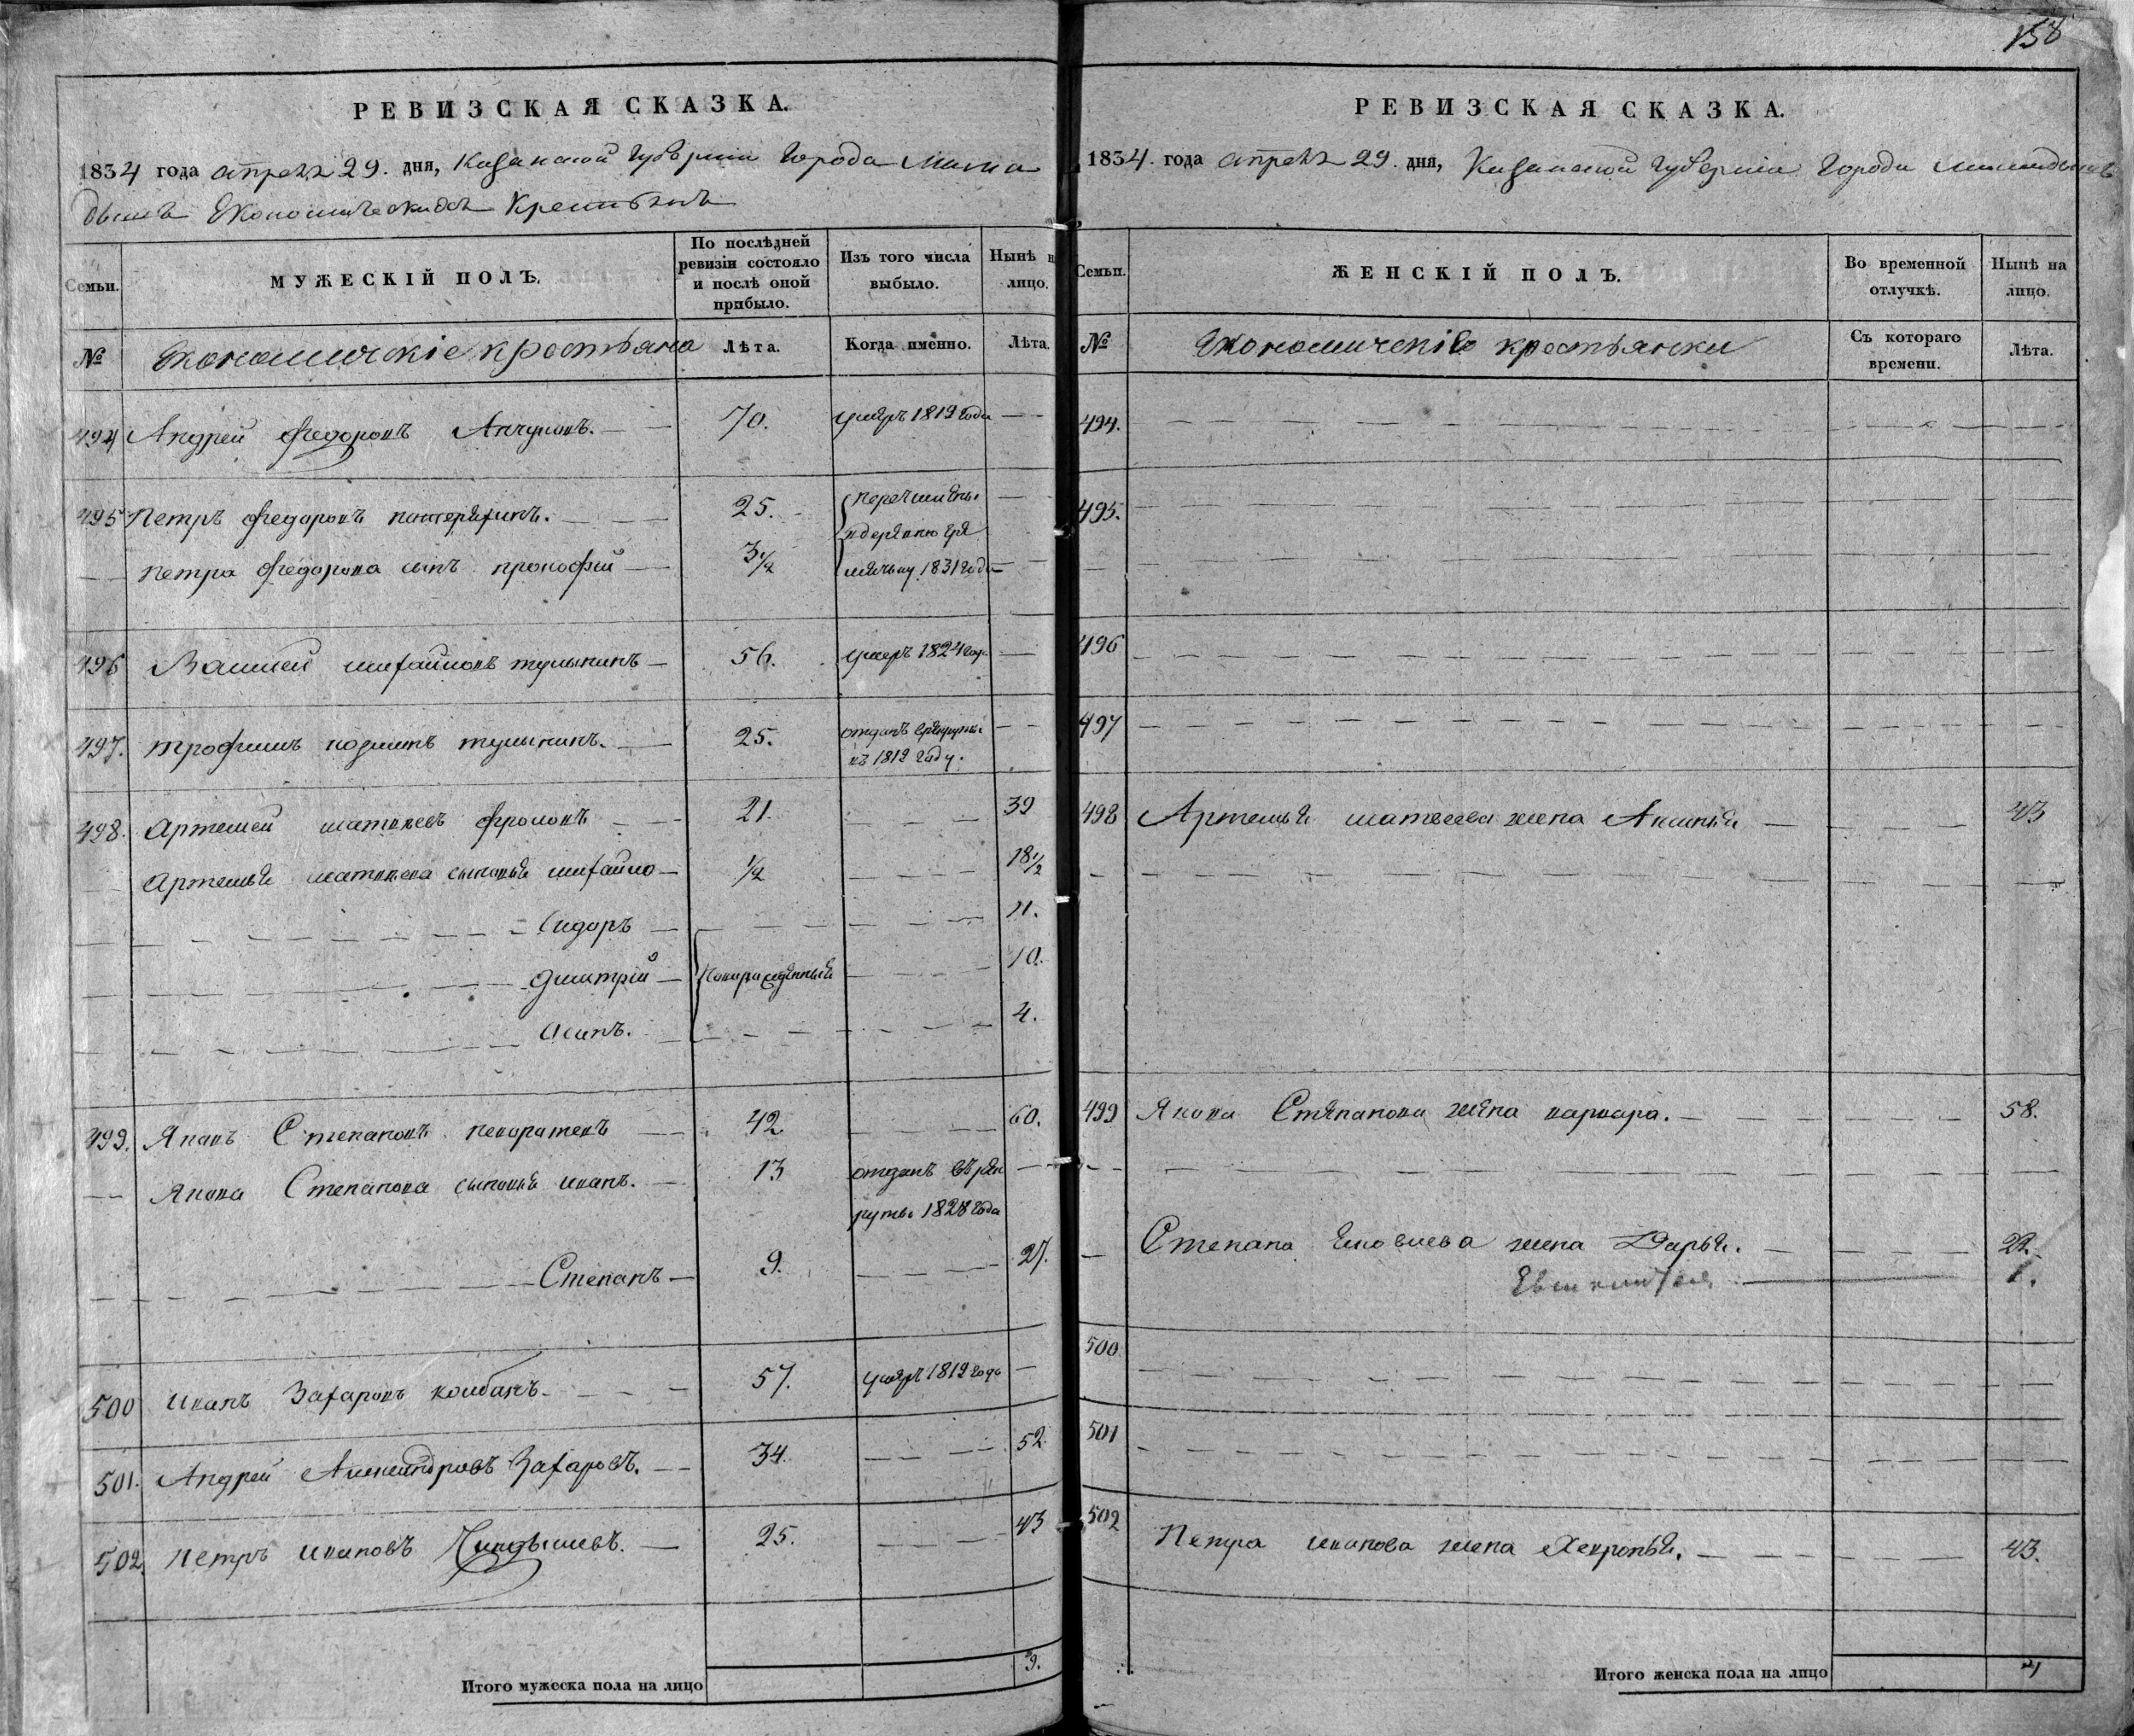 158
РЕВИЗСКАЯ СКАЗКА.
1834 года апреля 29. дня, Казанской губерніи города Мама
дышъ Економическихъ Крестьянъ
Семьи.
МУЖЕСКІЙ ПОЛЪ.
По послѣдней ревизіи состояло и послѣ оной прибыло.
Изъ того числа выбыло.
Нынѣ на лицо.
№
Економическіе крестьяне
Лѣта.
Когда именно.
Лѣта.
494 Андрей Федоровъ 70. умеръ 1819 года
495 Петръ Федоровъ 25. перечислены
Петра Федорова сынъ прокофей 3 1/2 1831 года
496 Василей михайловъ 56. умеръ 1824 года
497. трофимъ 25. отданъ в рекруты
въ 1812 году.
498. Артемей матвеевъ фроловъ 21. 39
Артемья матвеева сыновья михайло 1/2 18 1/2
Сидоръ 11.
дмитрій новорожденныя 10.
Осипъ. 4.
499. Яковъ Степановъ 42 60.
Якова Степанова сыновья иванъ. 13 отданъ въ рек
руты 1828 года
Степанъ 9. 27.
500 иванъ Захаровъ 57. умеръ 1819 года
501. Андрей Александровъ Захаровъ. 34. 52.
502. петръ ивановъ 25. 43
Итого мужеска пола на лицо 9.
РЕВИЗСКАЯ СКАЗКА.
1834. года апреля 29. дня, Казанской губерніи города мамадышъ
Семьи.
ЖЕНСКІЙ ПОЛЪ.
Во временной отлучкѣ.
Нынѣ на лицо.
№
Економическіе крестьянки
Съ котораго времени.
Лѣта.
494.
495.
496
497
498 Артемья матвеева жена Аксинья 43
499 Якова Степанова жена варвара. 58.
Степана Яковлева жена Дарья. 22.
1.
500
501
502
Петра иванова жена Февронья. 43.
Итого женска пола на лицо